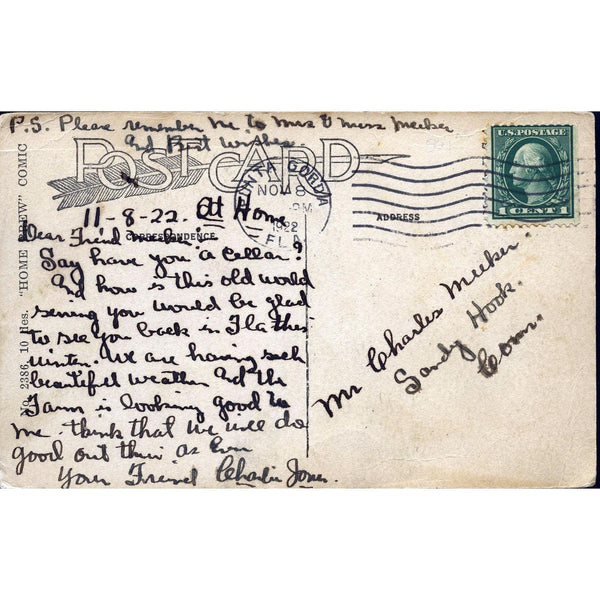 P.S. Please remember me to Mrs & Miss Meeker
And Best Wishes
POST CARD
11-8-22. At Home
Dear Friend
CORRESPONDENCE
Say have you a Cellar?
And how is this old world
serving you would be glad
to see you back in Fla this
winter. We are having such
beautiful weather And the
Farm is looking good to
me. think that we will do
good out this as Ever
Your Friend Charlie Jones.
PUNTA GORDA
NOV 8
PM
1922
FLA.
ADDRESS
U.S. POSTAGE
1 CENT 1
Mr Charles Meeker.
Sandy Hook.
Conn.
No. 2386, 10 Des. "HOME BREW" COMIC